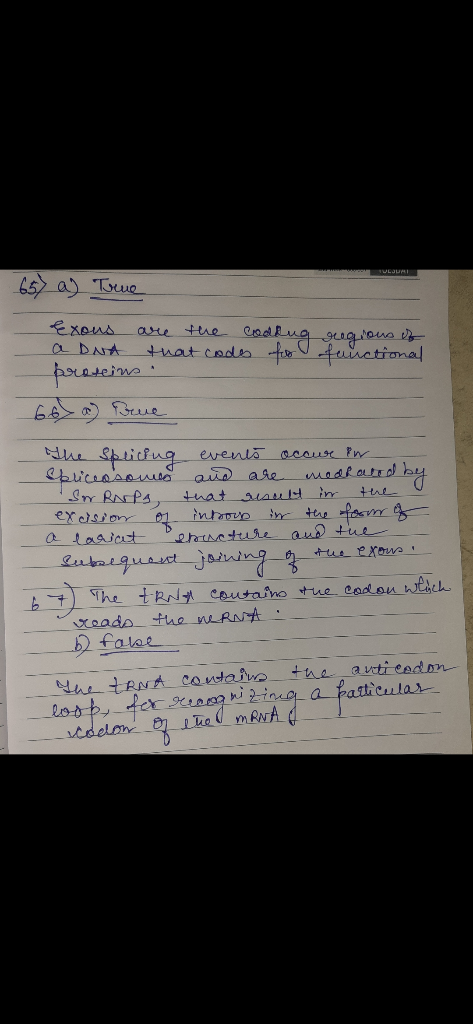 TUESDAY
65) a) True
Exons are the coding regions of
a DNA that codes for functional
proteins.
66) a) True
The splicing events occur in
Spliceosomes and are mediated by
Sn RNPs, that result in the
excision of introns in the form of
a lariat structure and the
subsequent joining of the exons.
67) The tRNA contains the codon which
reads the mRNA.
b) false
The tRNA contains the anticodon
loop, for recognizing a particular
codon of the mRNA